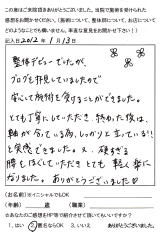 この度はご来院頂きありがとうございました。当院で施術を受けられた
感想をお聞かせください。(施術について、整体師について、お店について
どのようなことでも構いません、率直な意見をお聞かせ下さい!)
記入日 2012年 1月 13日
整体デビューでしたが、
ブログを拝見していましたので
安心して施術を受けることができました。
とても丁寧にしていただき、終わった後は、
軸が合っている為、しっかりと立っている!!
と実感できました。又、硬すぎる
腰もほぐしていただきとても軽く楽に
なりました。ありがとうございました
【お名前】※イニシャルでもOK
【年齢】 歳 【職業】
※あなたのご感想をHP等で紹介させて頂いてもいいですか?
1、はい 2、匿名ならOK 3、いいえ ありがとうございました。